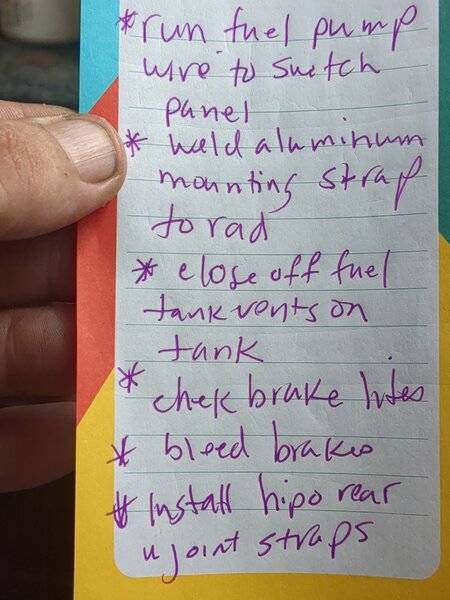 *run fuel pump
wire to switch
panel
* weld aluminum
mounting strap
to rad
* close off fuel
tank vents on
tank
*
chek brake lites
* bleed brakes
* Install hipo rear
u joint straps